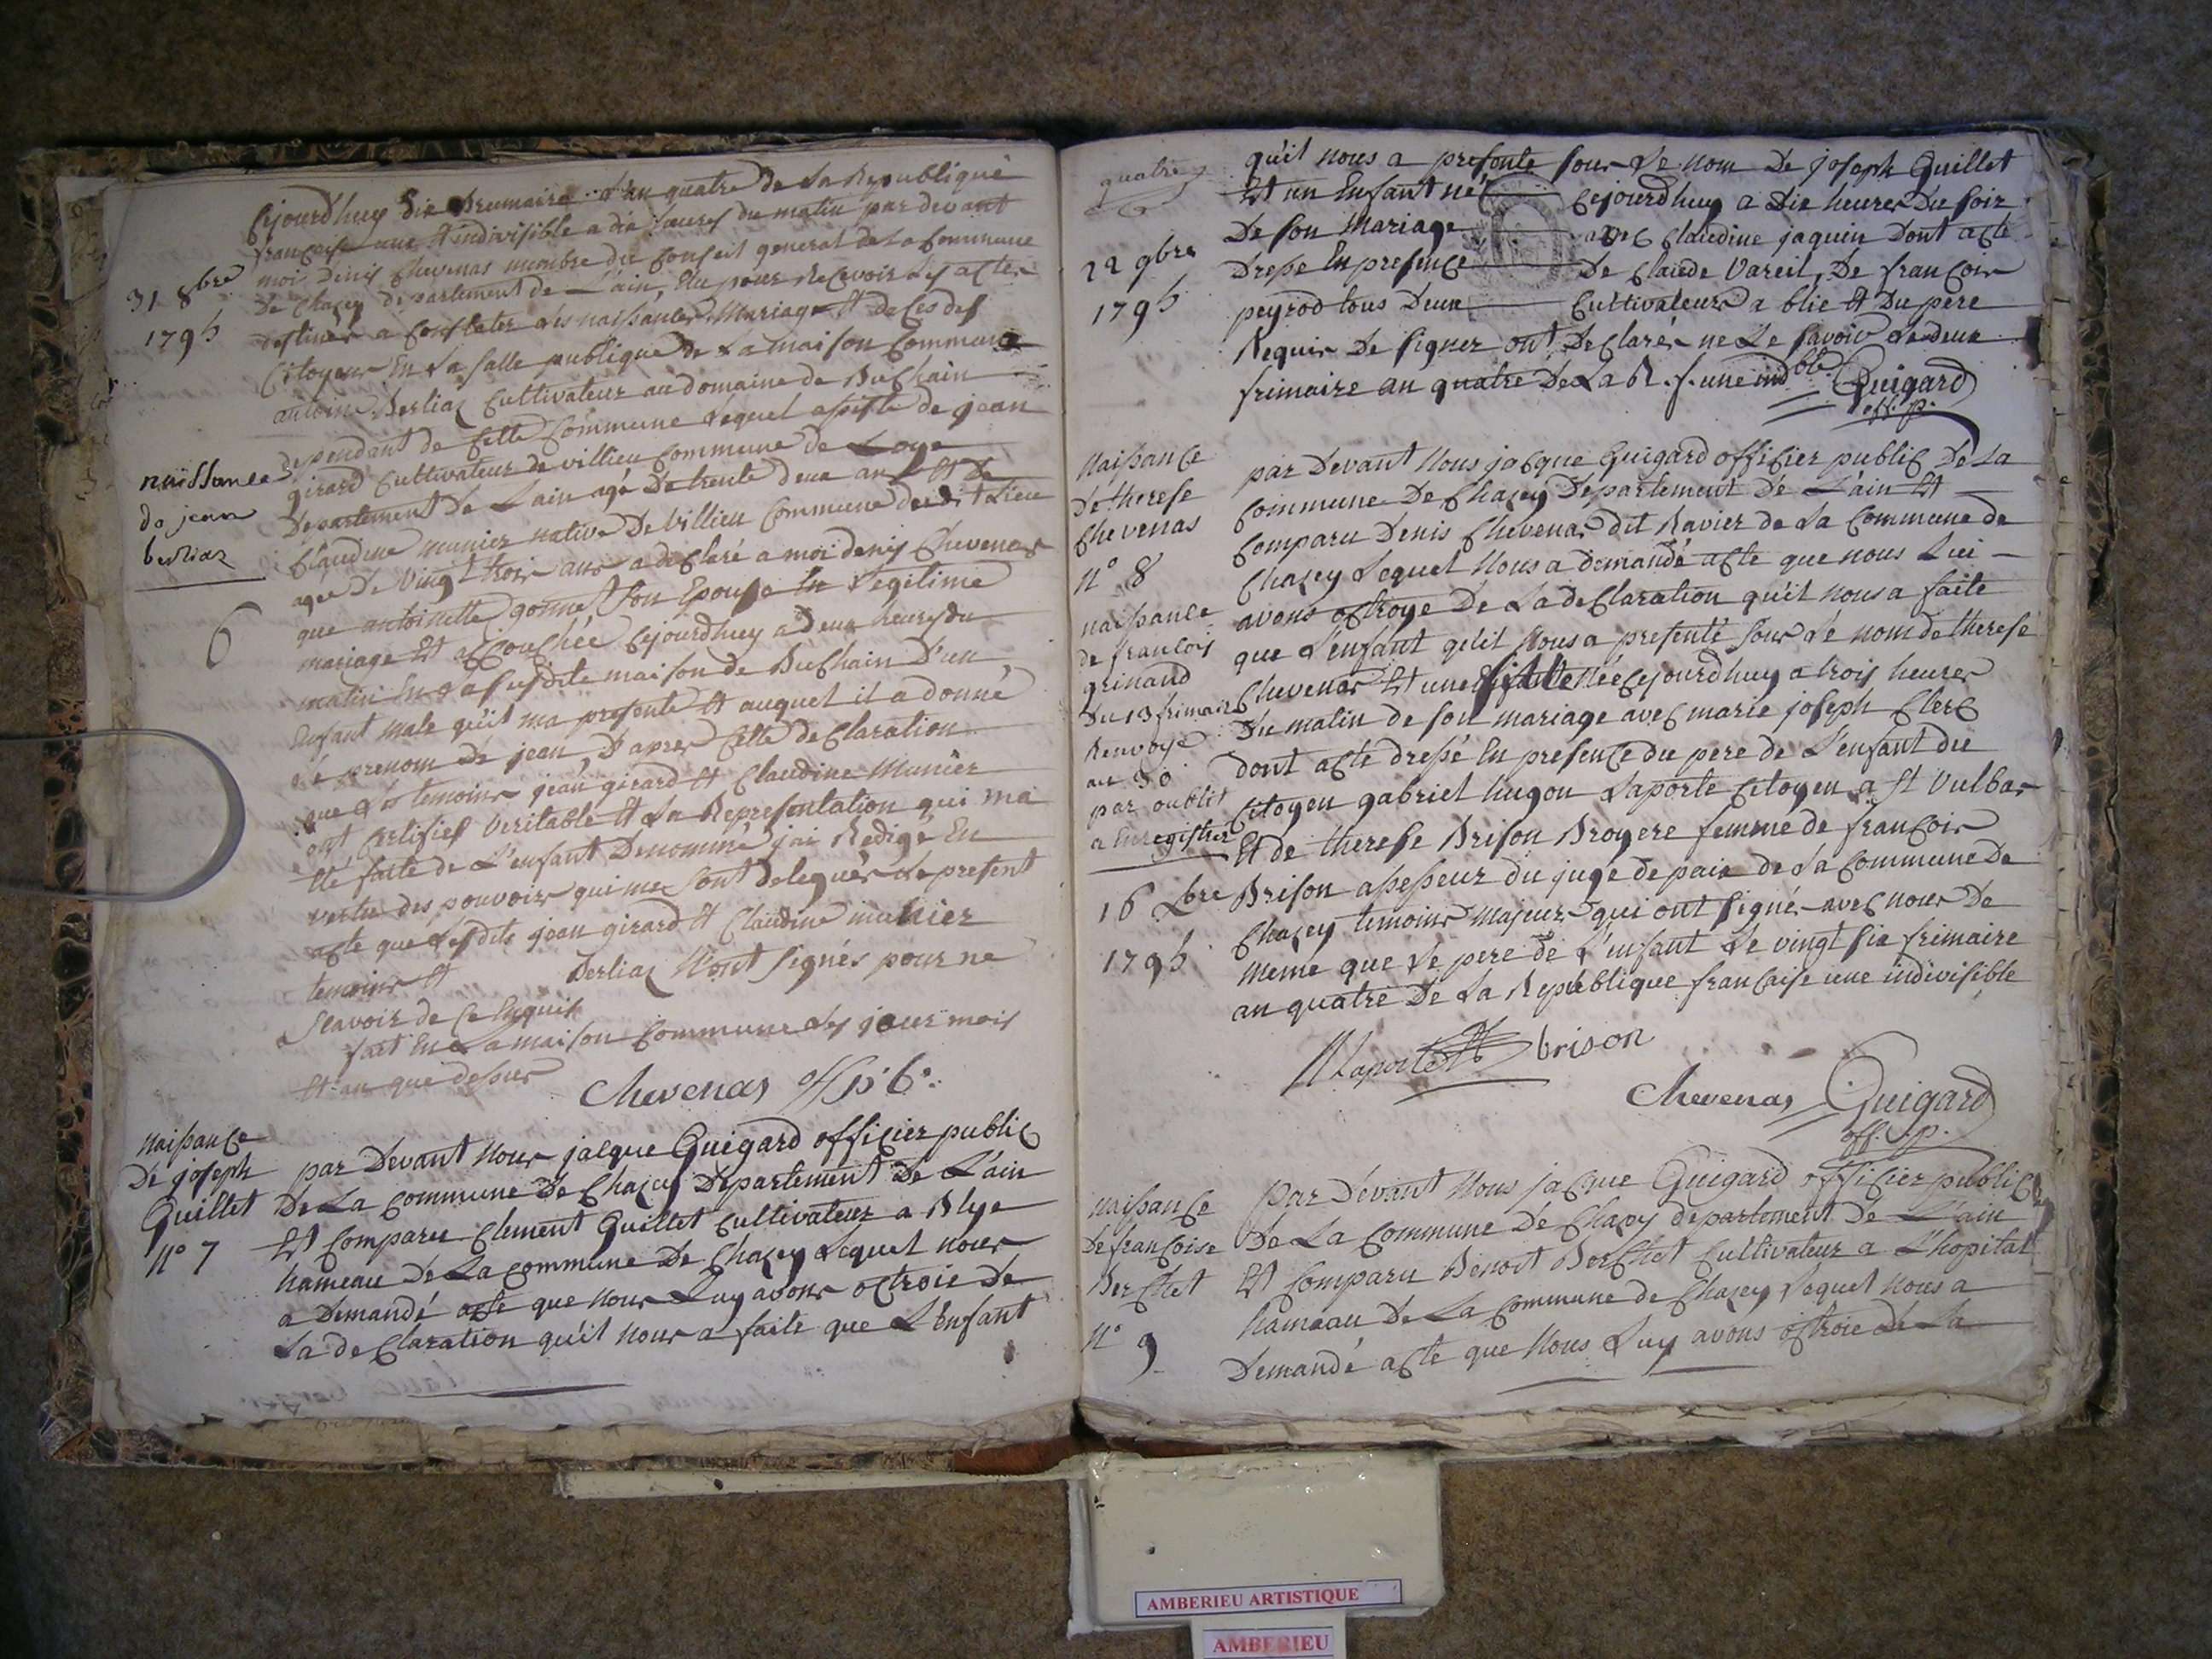 31 8bre
1795
naissance
de jean
berliaz
6
Cejourdhuy dix Brumaire l'an quatre de la Republique
française une et indivisible a dix heures du matin par devant
moi Denis Chevenas membre du Conseil general de la Commune
de Chazey departement de L'ain, Elu pour Recevoir les actes
destinés a Constater les naissances, Mariage et deces des
Citoyens En la salle publique de la maison Commune
antoine Berliaz Cultivateur au domaine de Buchain
dependant de Cette Commune Lequel assisté de jean
girard Cultivateur de villieu Commune de Loye
Departement de Lain agé De trente deux ans Et De
Claudine munier native De Villieu Commune dudit Lieu
agée De Vingt trois ans a declaré a moi denis Chevenas
que antoinette gonnet son Epouse En Legitime
mariage Et accouchée Cejourdhuy a Deux heures du
matin En la susdite maison de Buchain D'un
Enfant male qu'il ma presenté et auquel il a donné
le prenom de jean, D'apres Cette declaration
que les temoins jean girard Et Claudine Munier
ont Certifies Veritable Et La Representation qui ma
Eté faite de L'enfant Denommé j'ai Redigé En
vertu des pouvoirs qui me sont delegués Le present
acte que Lesdits jean girard Et Claudine munier
temoins Et Berliaz N'ont signés pour ne
scavoir de Ce Enquis
fait En La maison Commune Les jour mois
Et an que dessus
Chevenas off p b.
Naissance
De joseph
Quillet
N° 7
par Devant Nous jacque Guigard officier public
De La Commune De Chazey Departement De L'ain
Et Comparu Clement Quillet Cultivateur a Blye
hameau De La commune De Chazey Lequel nous
a Demandé acte que nous Luy avons octroié de
La declaration qu'il nous a faite que L'Enfant
quatre
22 9bre
1795
qu'il nous a presenté sous Le nom De joseph Quillet
Et un Enfant né Cejourdhuy a Dix heures Du soir
De son Mariage avec Claudine jaquin Dont acte
Dressé En presence De Claude Vareil, De françois
peyrod tous Deux Cultivateurs a blie et Du pere
Requis De signer ont Declarés ne Le savoir Le deux
frimaire an quatre De La R. f. une indble. Guigard
off. p.
Naissance
de therese
Chevenas
N° 8
naissance
de francois
grinand
Du 13 frimaire
Renvoyé
au 30
par oublit
a Enregistrer
16 Xbre
1795
par Devant Nous jacque Guigard officier public De La
Commune De Chazey Departement De L'ain Et
Comparu Denis Chevenas dit Ravier de La Commune de
Chazey Lequel Nous a demandé acte que nous Lui
avons octroye De La declaration qu'il nous a faite
que L'enfant qu'il Nous a presenté sous Le nom de therese
Chevenas Et une fille Née Cejourdhuy a trois heures
Du matin de son mariage avec marie joseph Clerc
dont acte dressé En presence du pere de L'enfant du
Citoyen gabriel hugon Laporte Citoyen a St Vulbas
Et de therese Brison Broyere femme de françois
Brison assesseur du juge de paix de La Commune De
Chazey temoins majeurs qui ont signés avec nous De
meme que Le pere de L'enfant Le vingt six frimaire
an quatre De La Republique française une indivisible
Laporte brison
Chevenas Guigard
off. p.
Naissance
De françoise
Berchet
N° 9
Par Devant Nous jacque Guigard officier public
De La Commune De Chazey departement De L'ain
Et Comparu Benoit Berchet Cultivateur a L'hopital
hameau De La Commune de Chazey Lequel Nous a
Demandé acte que Nous Luy avons octroié De La
AMBERIEU ARTISTIQUE
AMBERIEU